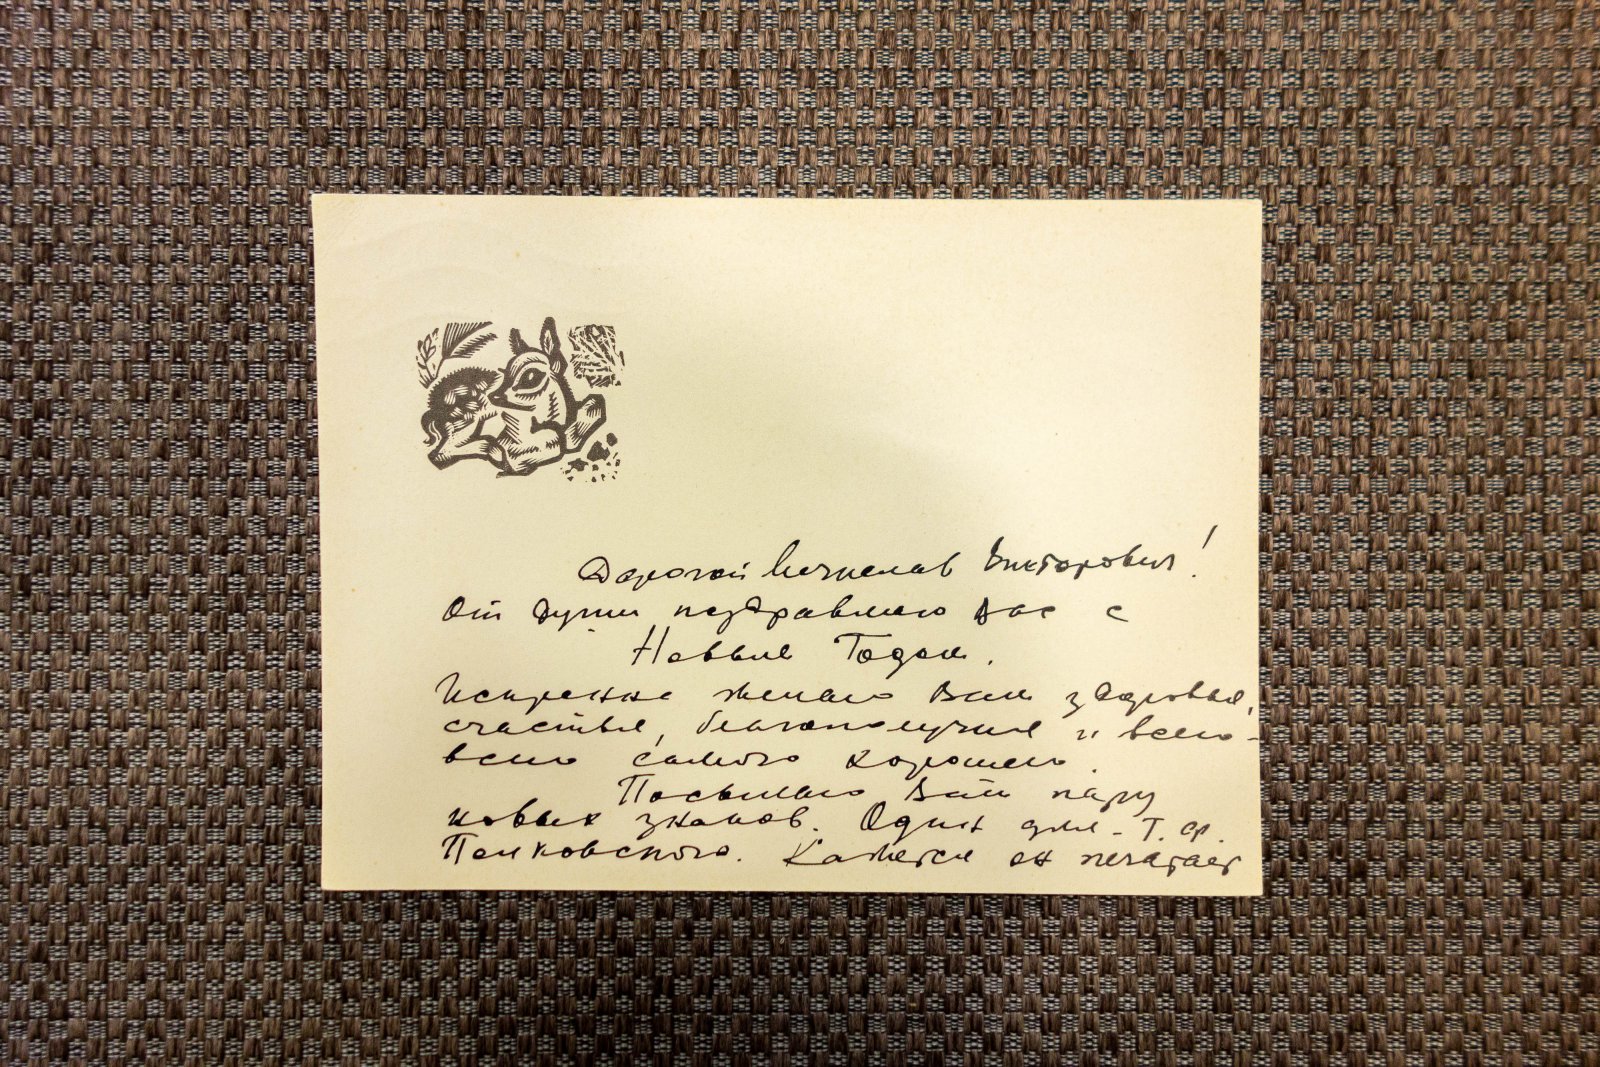 Дорогой Вячеслав Викторович!
От души поздравляю Вас с
Новым Годом.
Искренне желаю Вам здоровья,
счастья, благополучия и всего-
всего самого хорошего.
Посылаю Вам пару
новых знаков. Один для - Т. Ф.
Кажется он печатает